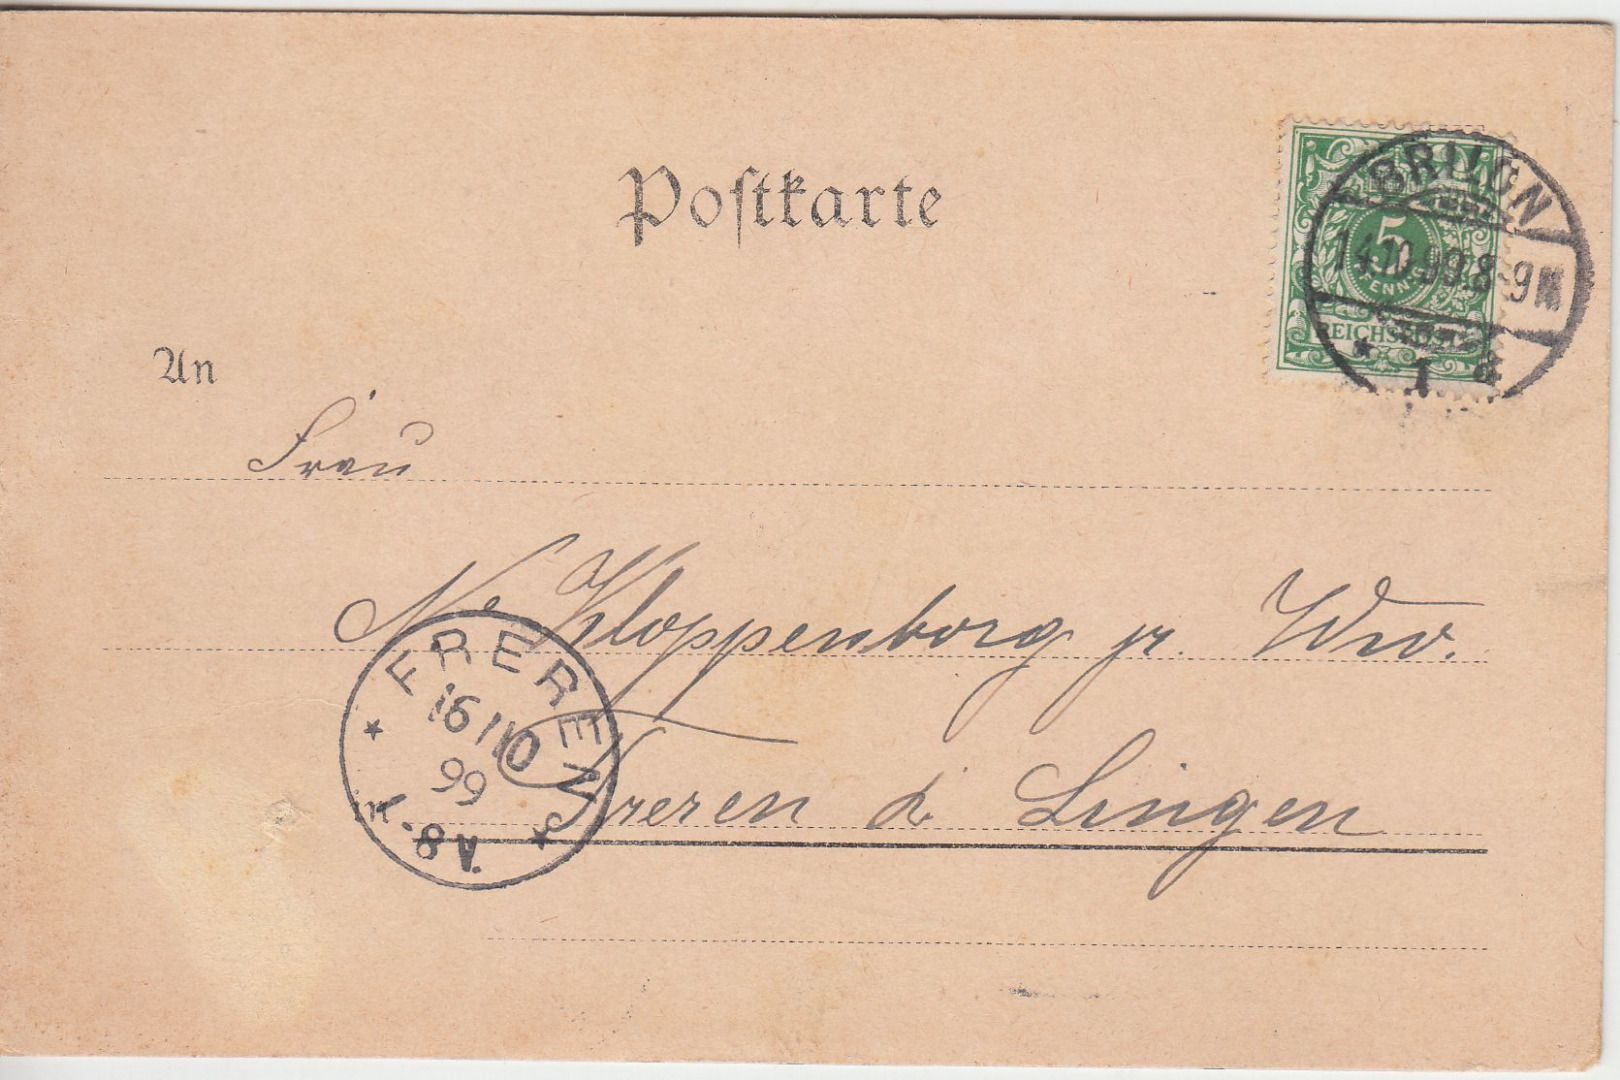 Postkarte
BRUEGN
14.10.99.8-9N
5
PFENNIG
REICHSPOST
* 1 a
An
Frau
Kloppenborg jr. Wwe.
FREREN
16/10
99
* *
8-
Freren b. Lingen
in